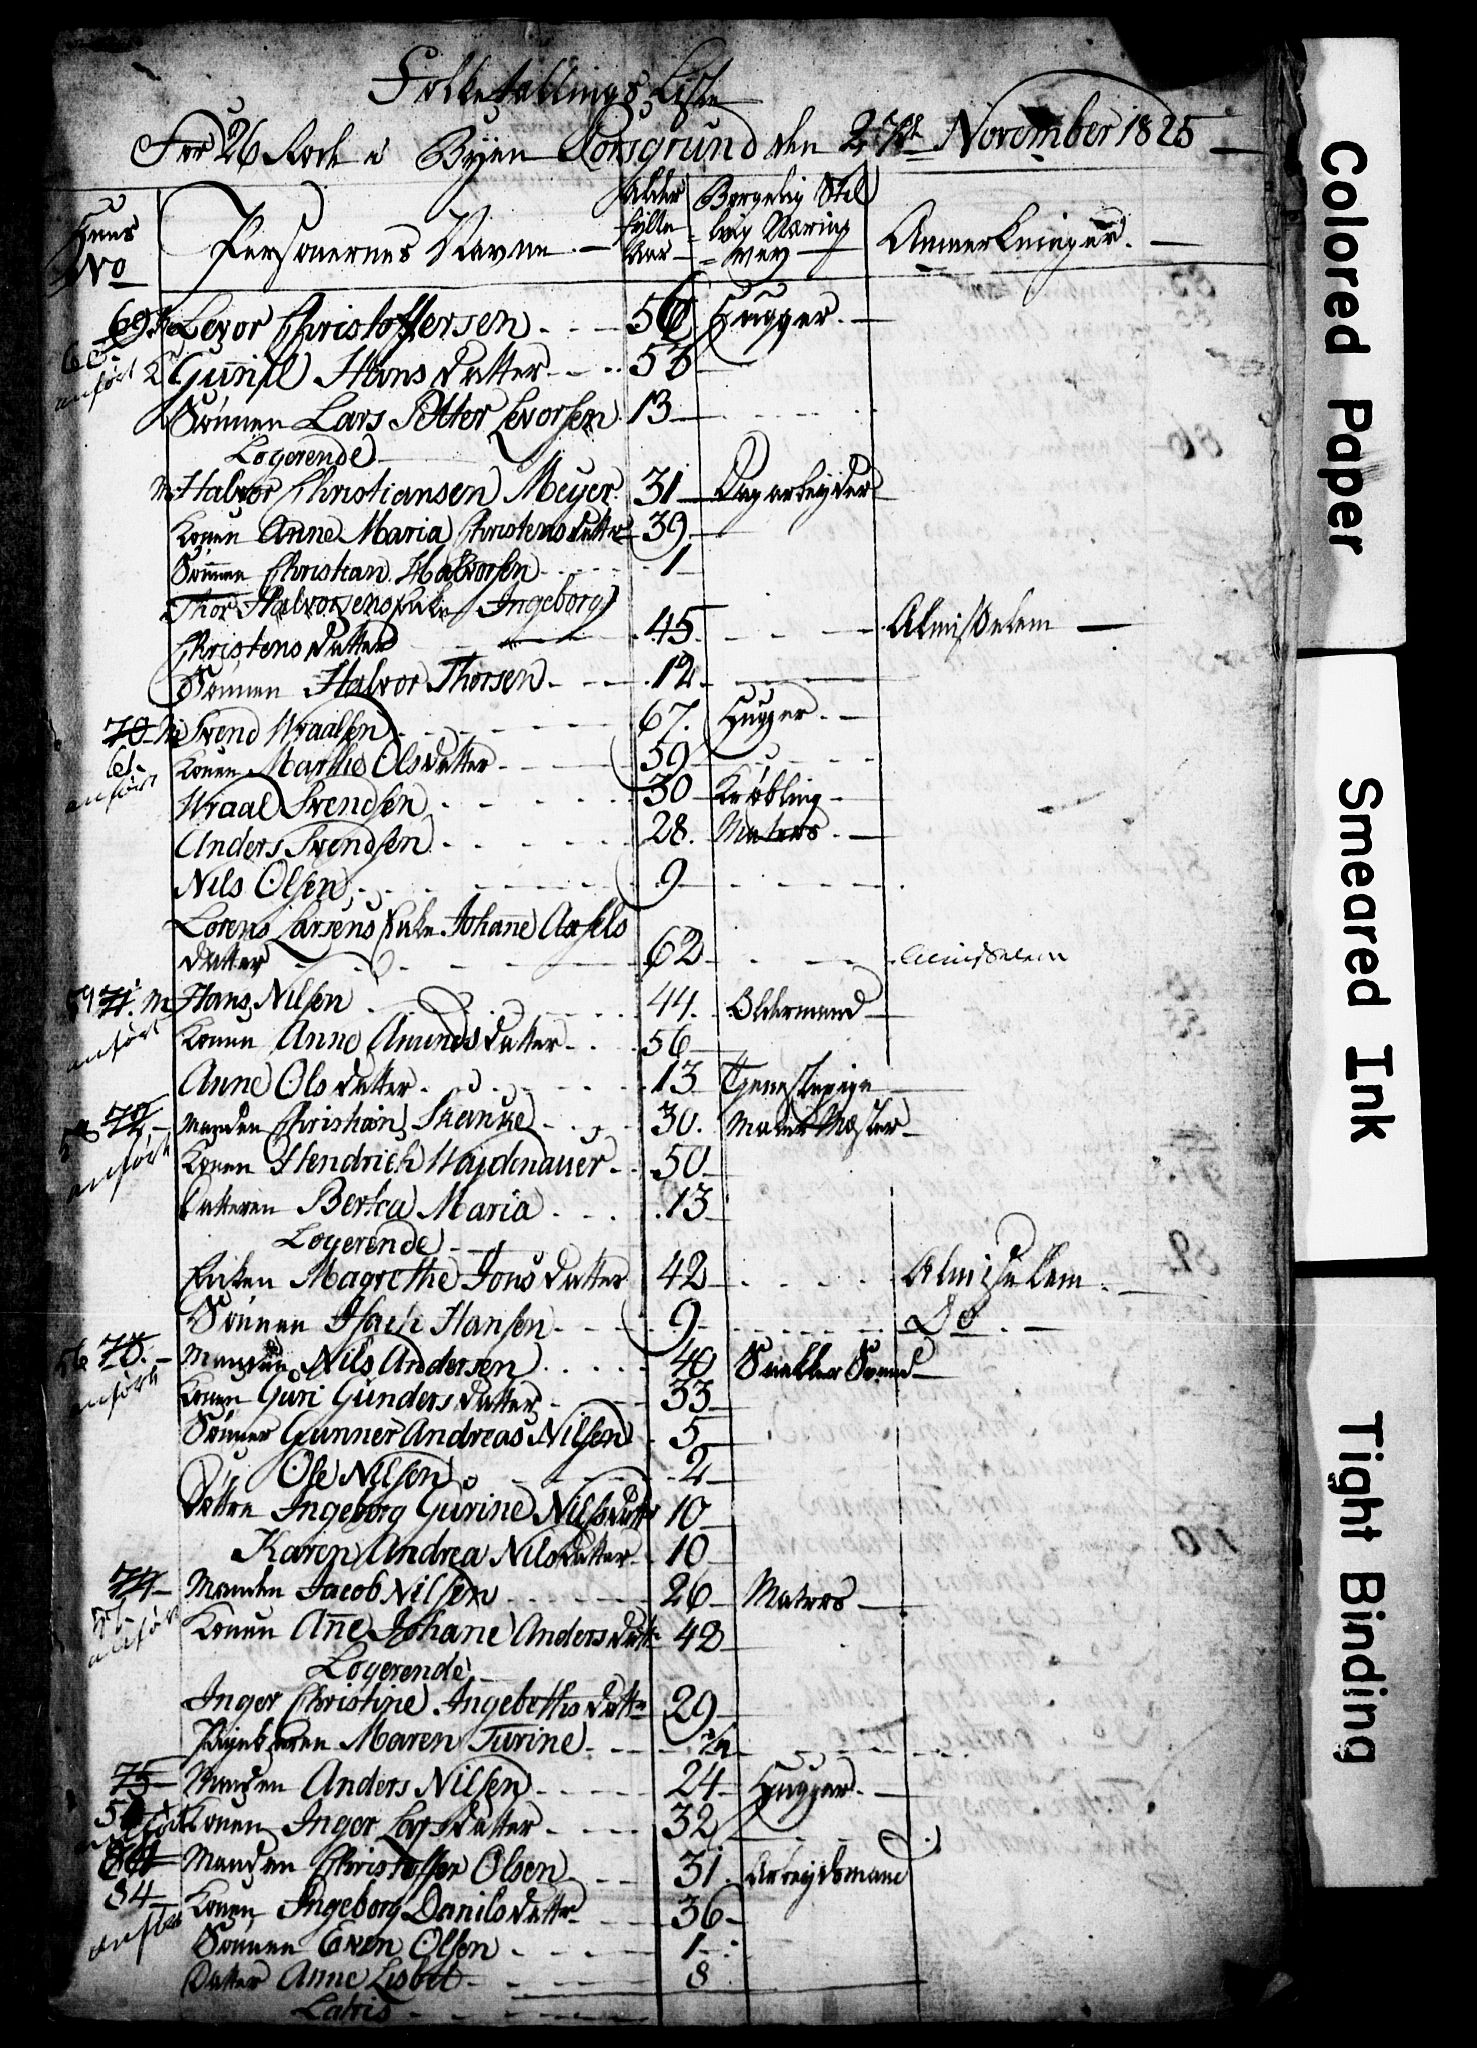 Folketællings Liste
For 26 Rode i Byen Porsgrund den 27de November 1825
Huus No
Personernes Navne
Alder fylte Aar
Borgelig Stilling Næringsvey
Anmerkninger
69 Levor Christoffersen 56 Hugger
anført Gunnil Hans datter 53
Sønnen Lars Petter Levorsen 13
Logerende
M Halvor Christiansen Meyer 31 Dagarbeyder
Konen Anne Maria Christensdatter 39
Sønnen Christian Halvorsen 1
Thor Halvorsens Enke Ingeborg
Christens datter 45 Almisselem
Sønnen Halvor Thorsen 12
70 M Svend Wraalsen 67 Hugger
61 Konen Marthe Olsdatter 59
anført Wraal Svendsen 30 Krøbling
Anders Svendsen 28 Matros
Nils Olsen 9
Lorens Larsens Enke Johane Axsels
datter 62 Almisselem
59 71 M Hans Nilsen 44 Oldermand
anført Konen Anne Amunds datter 56
Anne Ols datter 13 Tjenestepige
72 Manden Christian Skanke 30
anført Konen Hendrich Haydenauer 50
Datteren Bertea Maria 13
Logerende
Enken Magrethe Jons datter 42 Almisselem
Sønnen Isach Hansen 9 Do
56 73 Manden Nils Andersen 40 Snekker Svend
anført Konen Guri Gunders datter 33
Sønner Gunner Andreas Nilsen 5
Ole Nilsen 2
Døttre Ingeborg Gurine Nilsdatt 10
Karen Andrea Nilsdatter 10
74 Manden Jacob Nilsen 26 Matros
anført Konen Anne Johane Anders datt 42
Logerende
Inger Christine Ingebrethsdatt 29
Pigebarn Maren Turine
75 Manden Anders Nilsen 24 Hugger
anført Konen Inger Larsdatter 32
Manden Christoffer Olsen 31 Arbeydsmand
84 Konen Ingeborg Danils datter 36
anført Sønnen Even Olsen 1
Datter Anne Lisbet 8
Latris
Colored Paper
Smeared Ink
Tight Binding